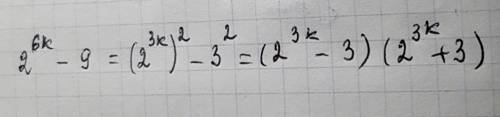 2^{6k} - 9 = (2^{3k})^2 - 3^2 = (2^{3k} - 3) (2^{3k} + 3)